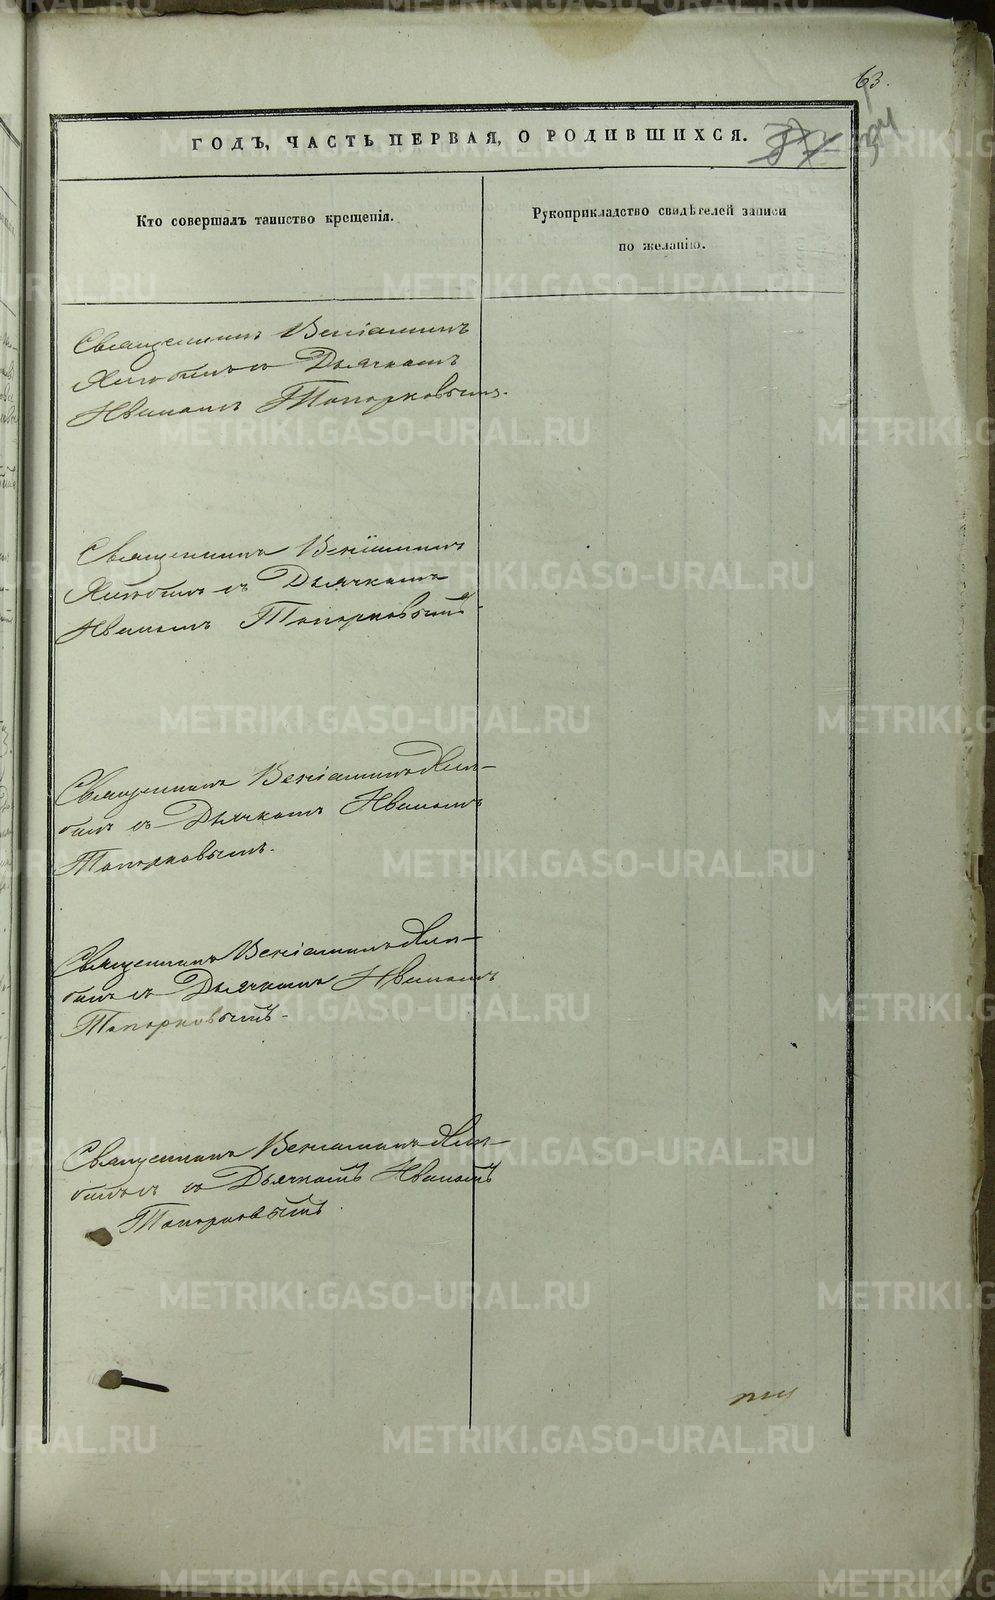 63.
ГОДЪ, ЧАСТЬ ПЕРВАЯ, О РОДИВШИХСЯ.
Кто совершалъ таинство крещенія.
Рукоприкладство свидѣтелей записи
по желанію.
Священникъ Веніаминъ
съ Дьячкомъ
Иваномъ Топорковымъ.
Священникъ Веніаминъ
съ Дьячкомъ
Иваномъ Топорковымъ.
Священникъ Веніаминъ
съ Дьячкомъ Иваномъ
Топорковымъ.
Священникъ Веніаминъ
съ Дьячкомъ Иваномъ
Топорковымъ.
Священникъ Веніаминъ
съ Дьячкомъ Иваномъ
Топорковымъ.
METRIKI.GASO-URAL.RU